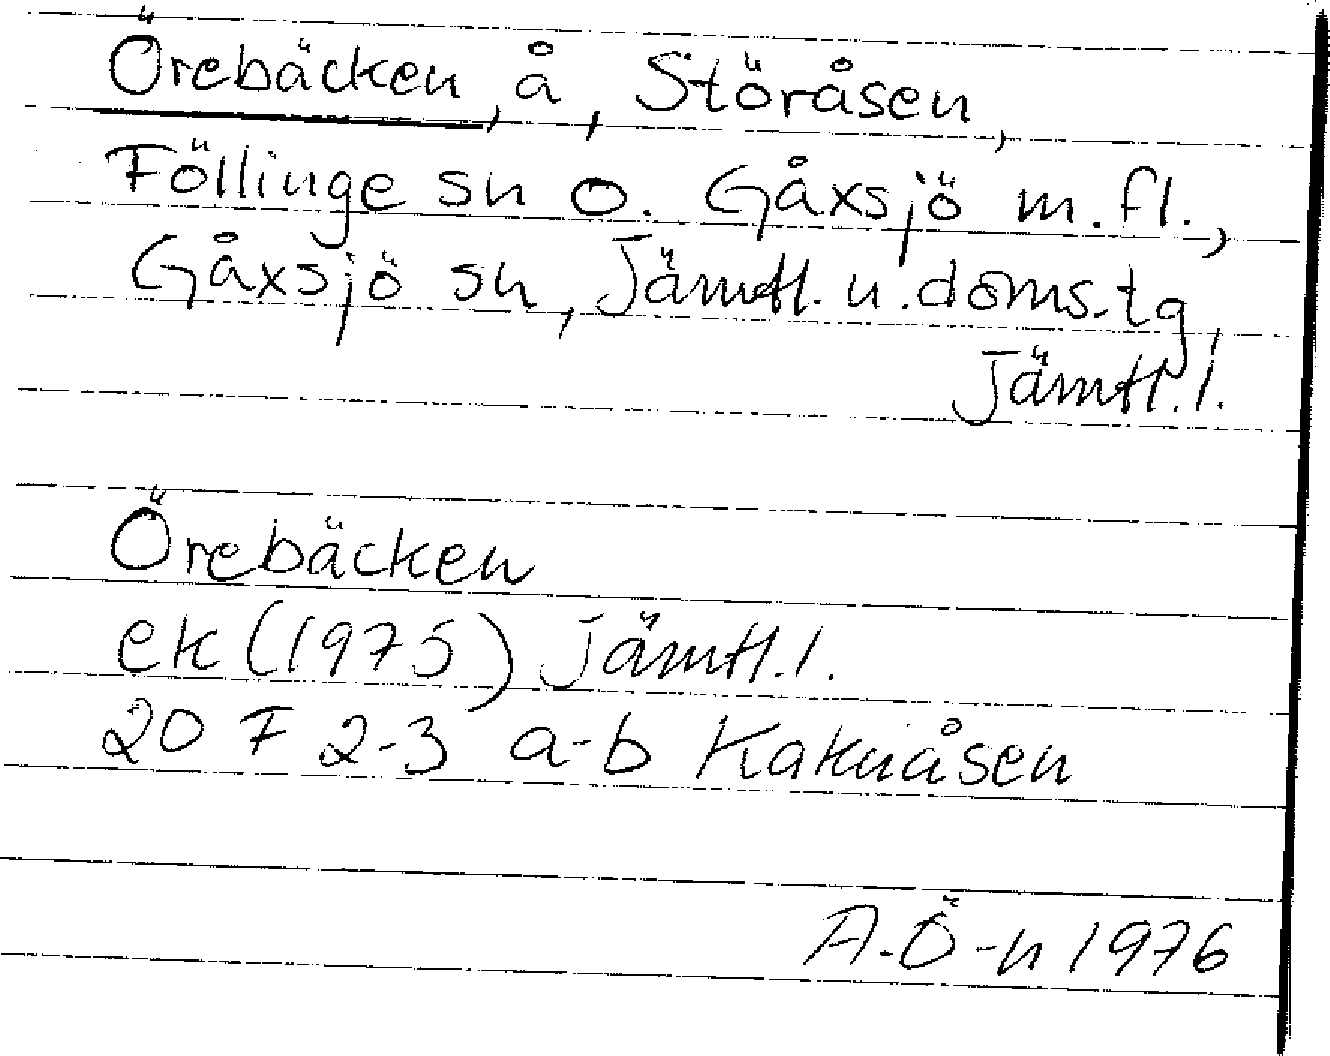 Örebäcken, å, Störåsen,
Föllinge sn o. Gåxsjö m.fl.,
Gåxsjö sn, Jämtl. n. doms.tg,
Jämtl.l.
Örebäcken
ek (1975) Jämtl.l.
20 F 2-3 a-b Kaknåsen
A.Ö-n 1976